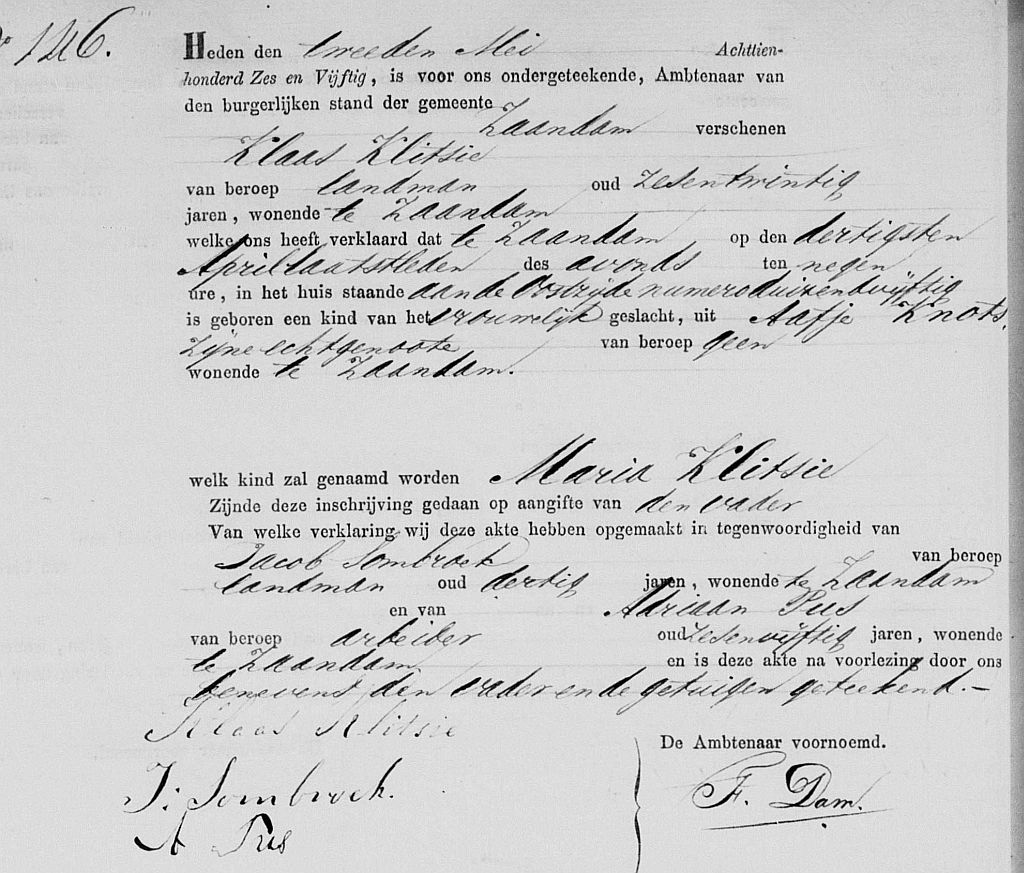 No 146.
Heden den tweeden Mei Achttien-
honderd Zes en Vijftig, is voor ons ondergeteekende, Ambtenaar van
den burgerlijken stand der gemeente
Zaandam verschenen
Klaas Klitsie
van beroep landman oud zesentwintig
jaren, wonende te Zaandam
welke ons heeft verklaard dat te Zaandam op den dertigsten
April laatstleden des avonds ten negen
ure, in het huis staande aan de Oostzijde numero duizendvijftig
is geboren een kind van het vrouwelijk geslacht, uit Aafje Knots,
zijne echtgenoote van beroep geen
wonende te Zaandam.
welk kind zal genaamd worden Maria Klitsie
Zijnde deze inschrijving gedaan op aangifte van den vader
Van welke verklaring wij deze akte hebben opgemaakt in tegenwoordigheid van
Jacob Sombroek van beroep
landman oud dertig jaren, wonende te Zaandam
en van Adriaan Pus
van beroep arbeider oud zesenvijftig jaren, wonende
te Zaandam en is deze akte na voorlezing door ons
benevens den vader en de getuigen geteekend.—
Klaas Klitsie
De Ambtenaar voornoemd.
J: Sombroek.
F. Dam.
A Pus